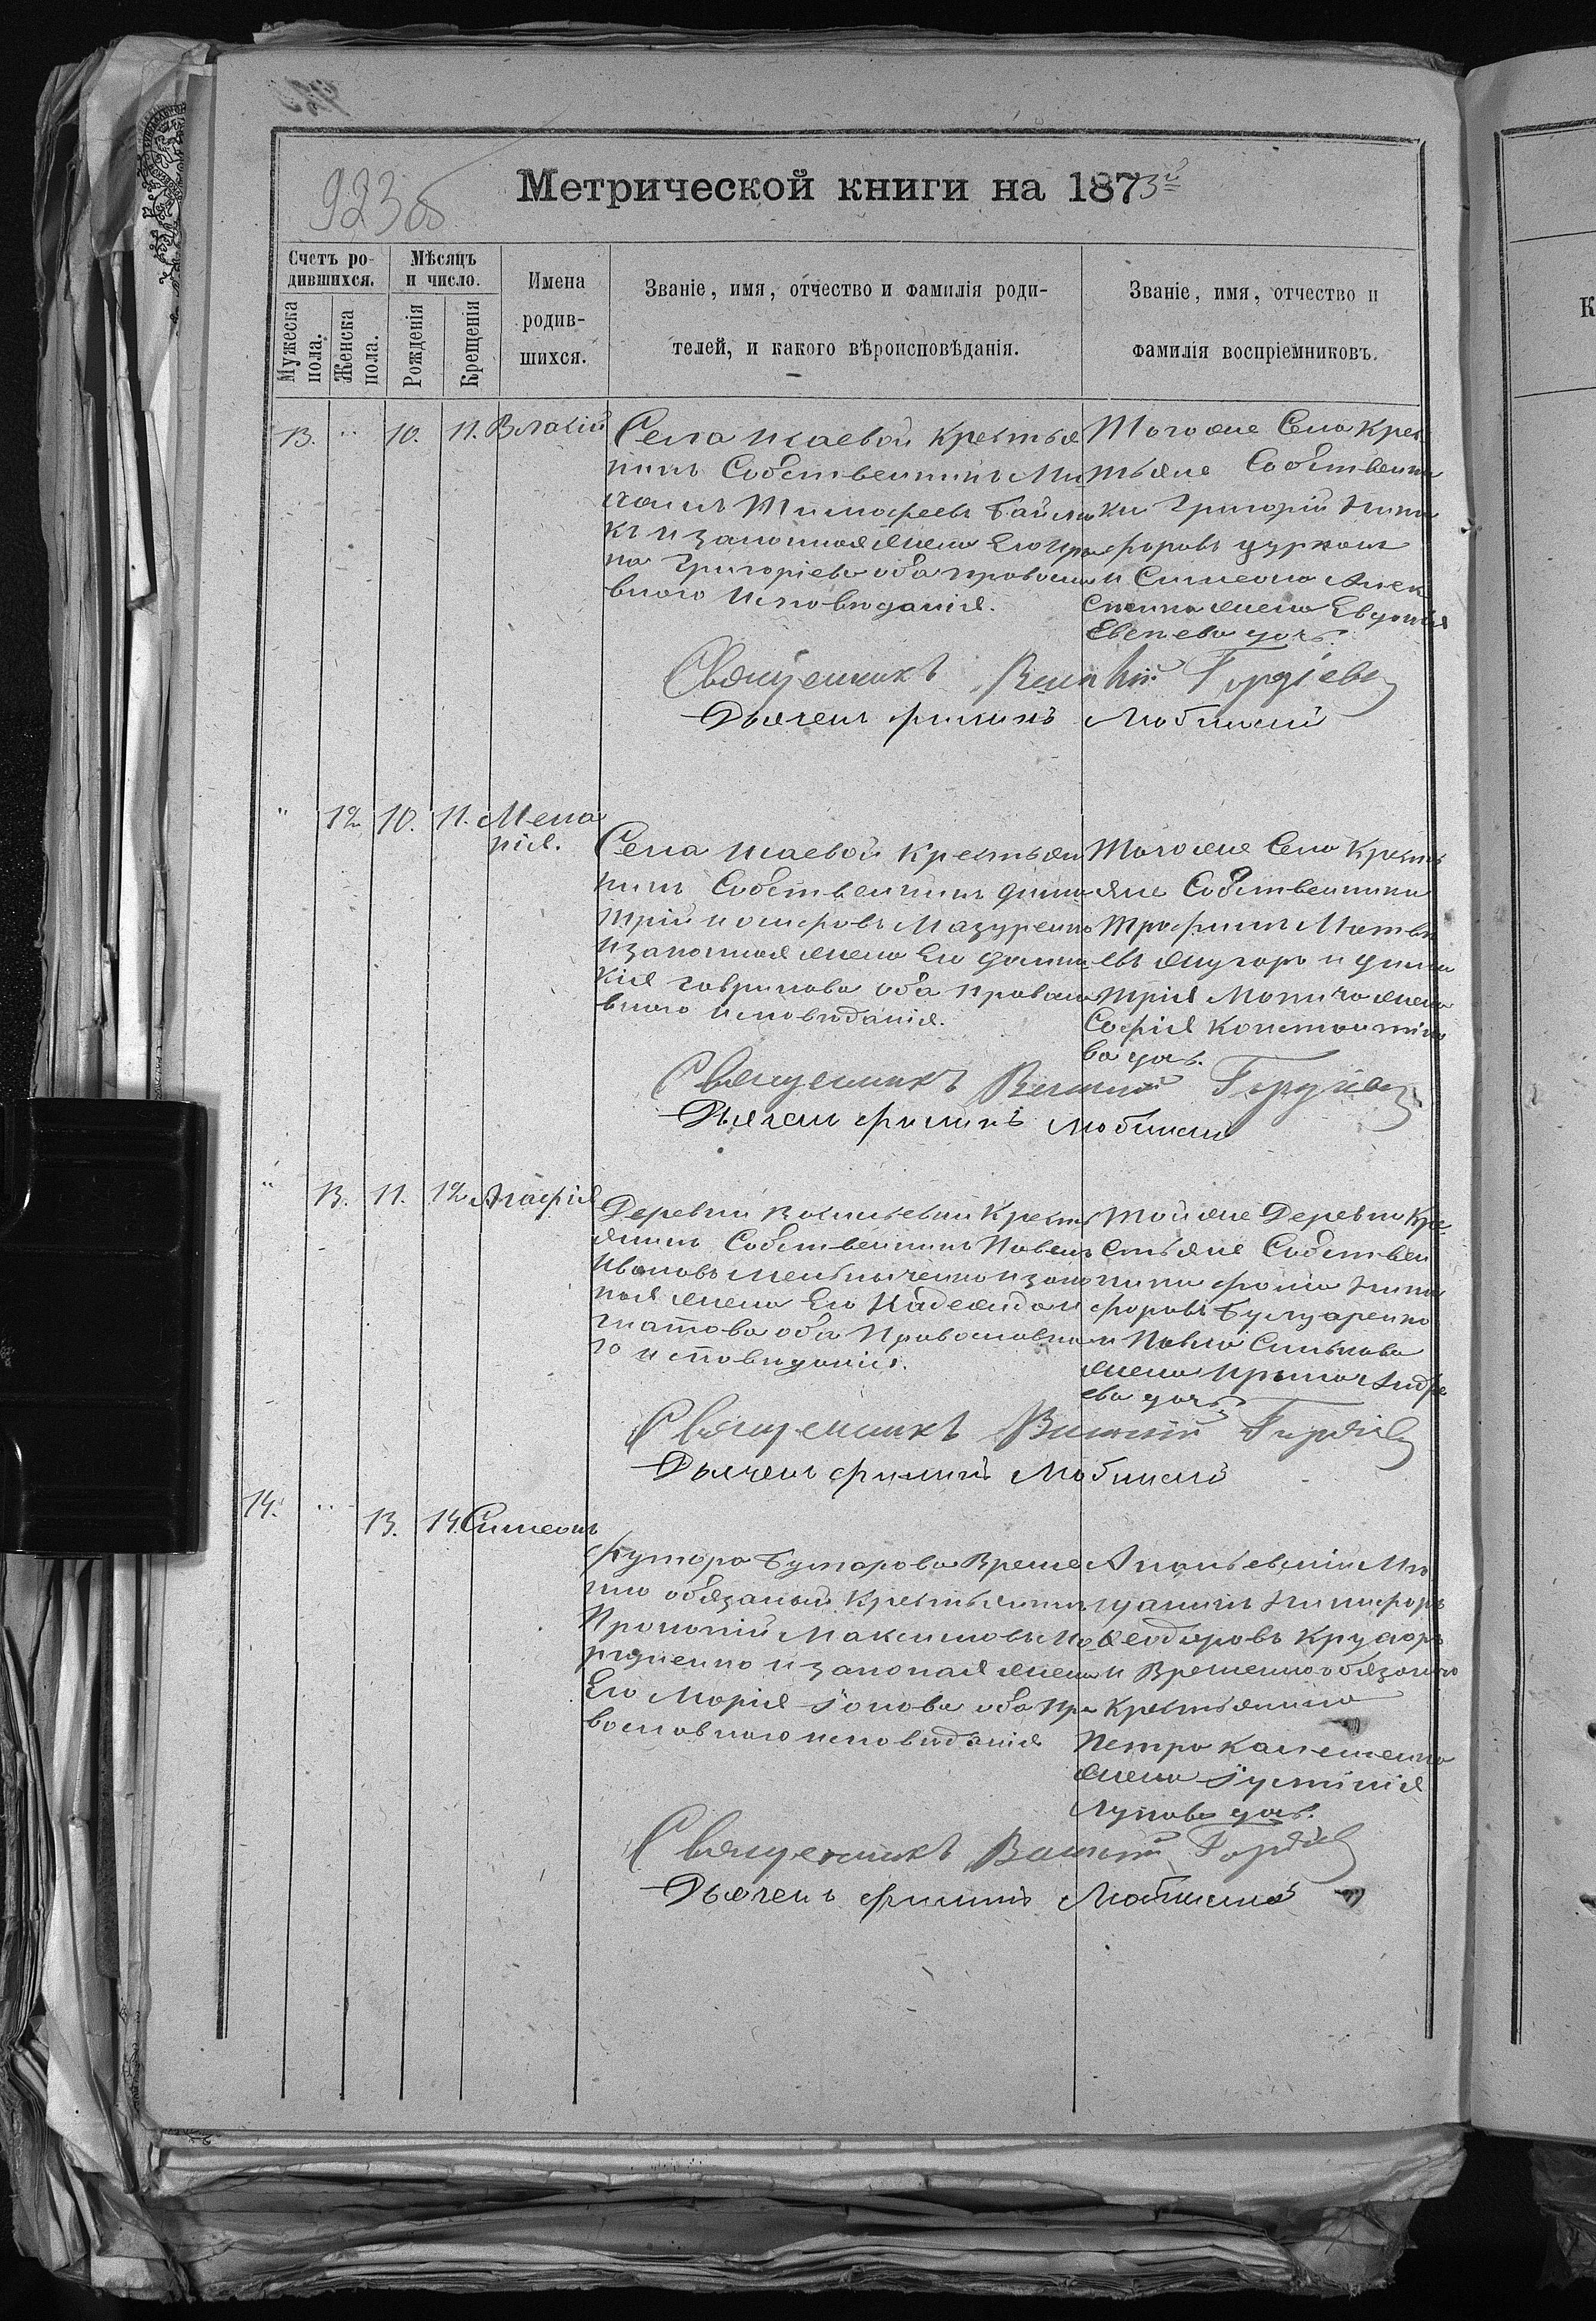 923об
Метрической книги на 1873й
Счетъ ро-
дившихся.
Мужеска
пола.
Женска
пола.
Мѣсяцъ
и число.
Рожденія
Крещенія
Имена
родив-
шихся.
Званіе, имя, отчество и фамилія роди-
телей, и какого вѣроисповѣданія.
Званіе, имя, отчество и
фамилія воспріемниковъ.
13. " 10. 11. Власій
Села Исаевой Крестья
нинъ Собственникъ Ми
хаилъ Тимофеевъ
къ и законная жена Его Ири
на Григоріева оба православ
вного Исповѣданія.
Того же Села Крес
тьяне Собственни
ки Григорій Ники
форовъ Цуркан
и Симеона Алек
жена Евдокія
дочь.
Священникъ Василій Гордіевъ
Дьячекъ Филипъ Любинскій
" 12 10. 11. Мела
нія.
Села Исаевой Крестьян
нинъ Собственникъ Дими
трій Иосифовъ Мазуренко
и законная жена Его Домни
кія Гаврилова оба Православ
вного Исповѣданія.
Того же Села Кресть
яне Собственники
Трофимъ Матвѣ
евъ и Дими
трія жена
Софія Константино
ва дочь.
Священникъ Василій Гордіевъ
Дьячекъ Филипъ Любинскій
" 13. 11. 12 Агафія
Деревни Васильевки Кресть
янинъ Собственникъ Павелъ
Ивановъ и закон
ная жена Его Надежда И
гнатова оба Православна
го исповѣданія.
Той же Деревни Кре
стьяне Собствен
ники Фома Ники
форовъ Бугаренко
и Павла Силькова
жена Ирина Андре
ева дочь.
Священникъ Василій Гордіевъ
Дьячекъ Филипъ Любинскій
14. " 13. 14. Симеонъ
Футора Бутарова Време
нно обязаный Крестьянинъ
Прокопій Максимовъ
и законая жена
Его Марія Іонова оба Пра
вославного исповѣданія
Ананьевскій Мѣ
щанинъ Никифоръ
Феодоровъ
и Временнообязаного
Крестьянина
Петра
жена Іустинія
Лукова дочь.
Священникъ Василій Гордіевъ
Дьячекъ Филипъ Любинскій
К